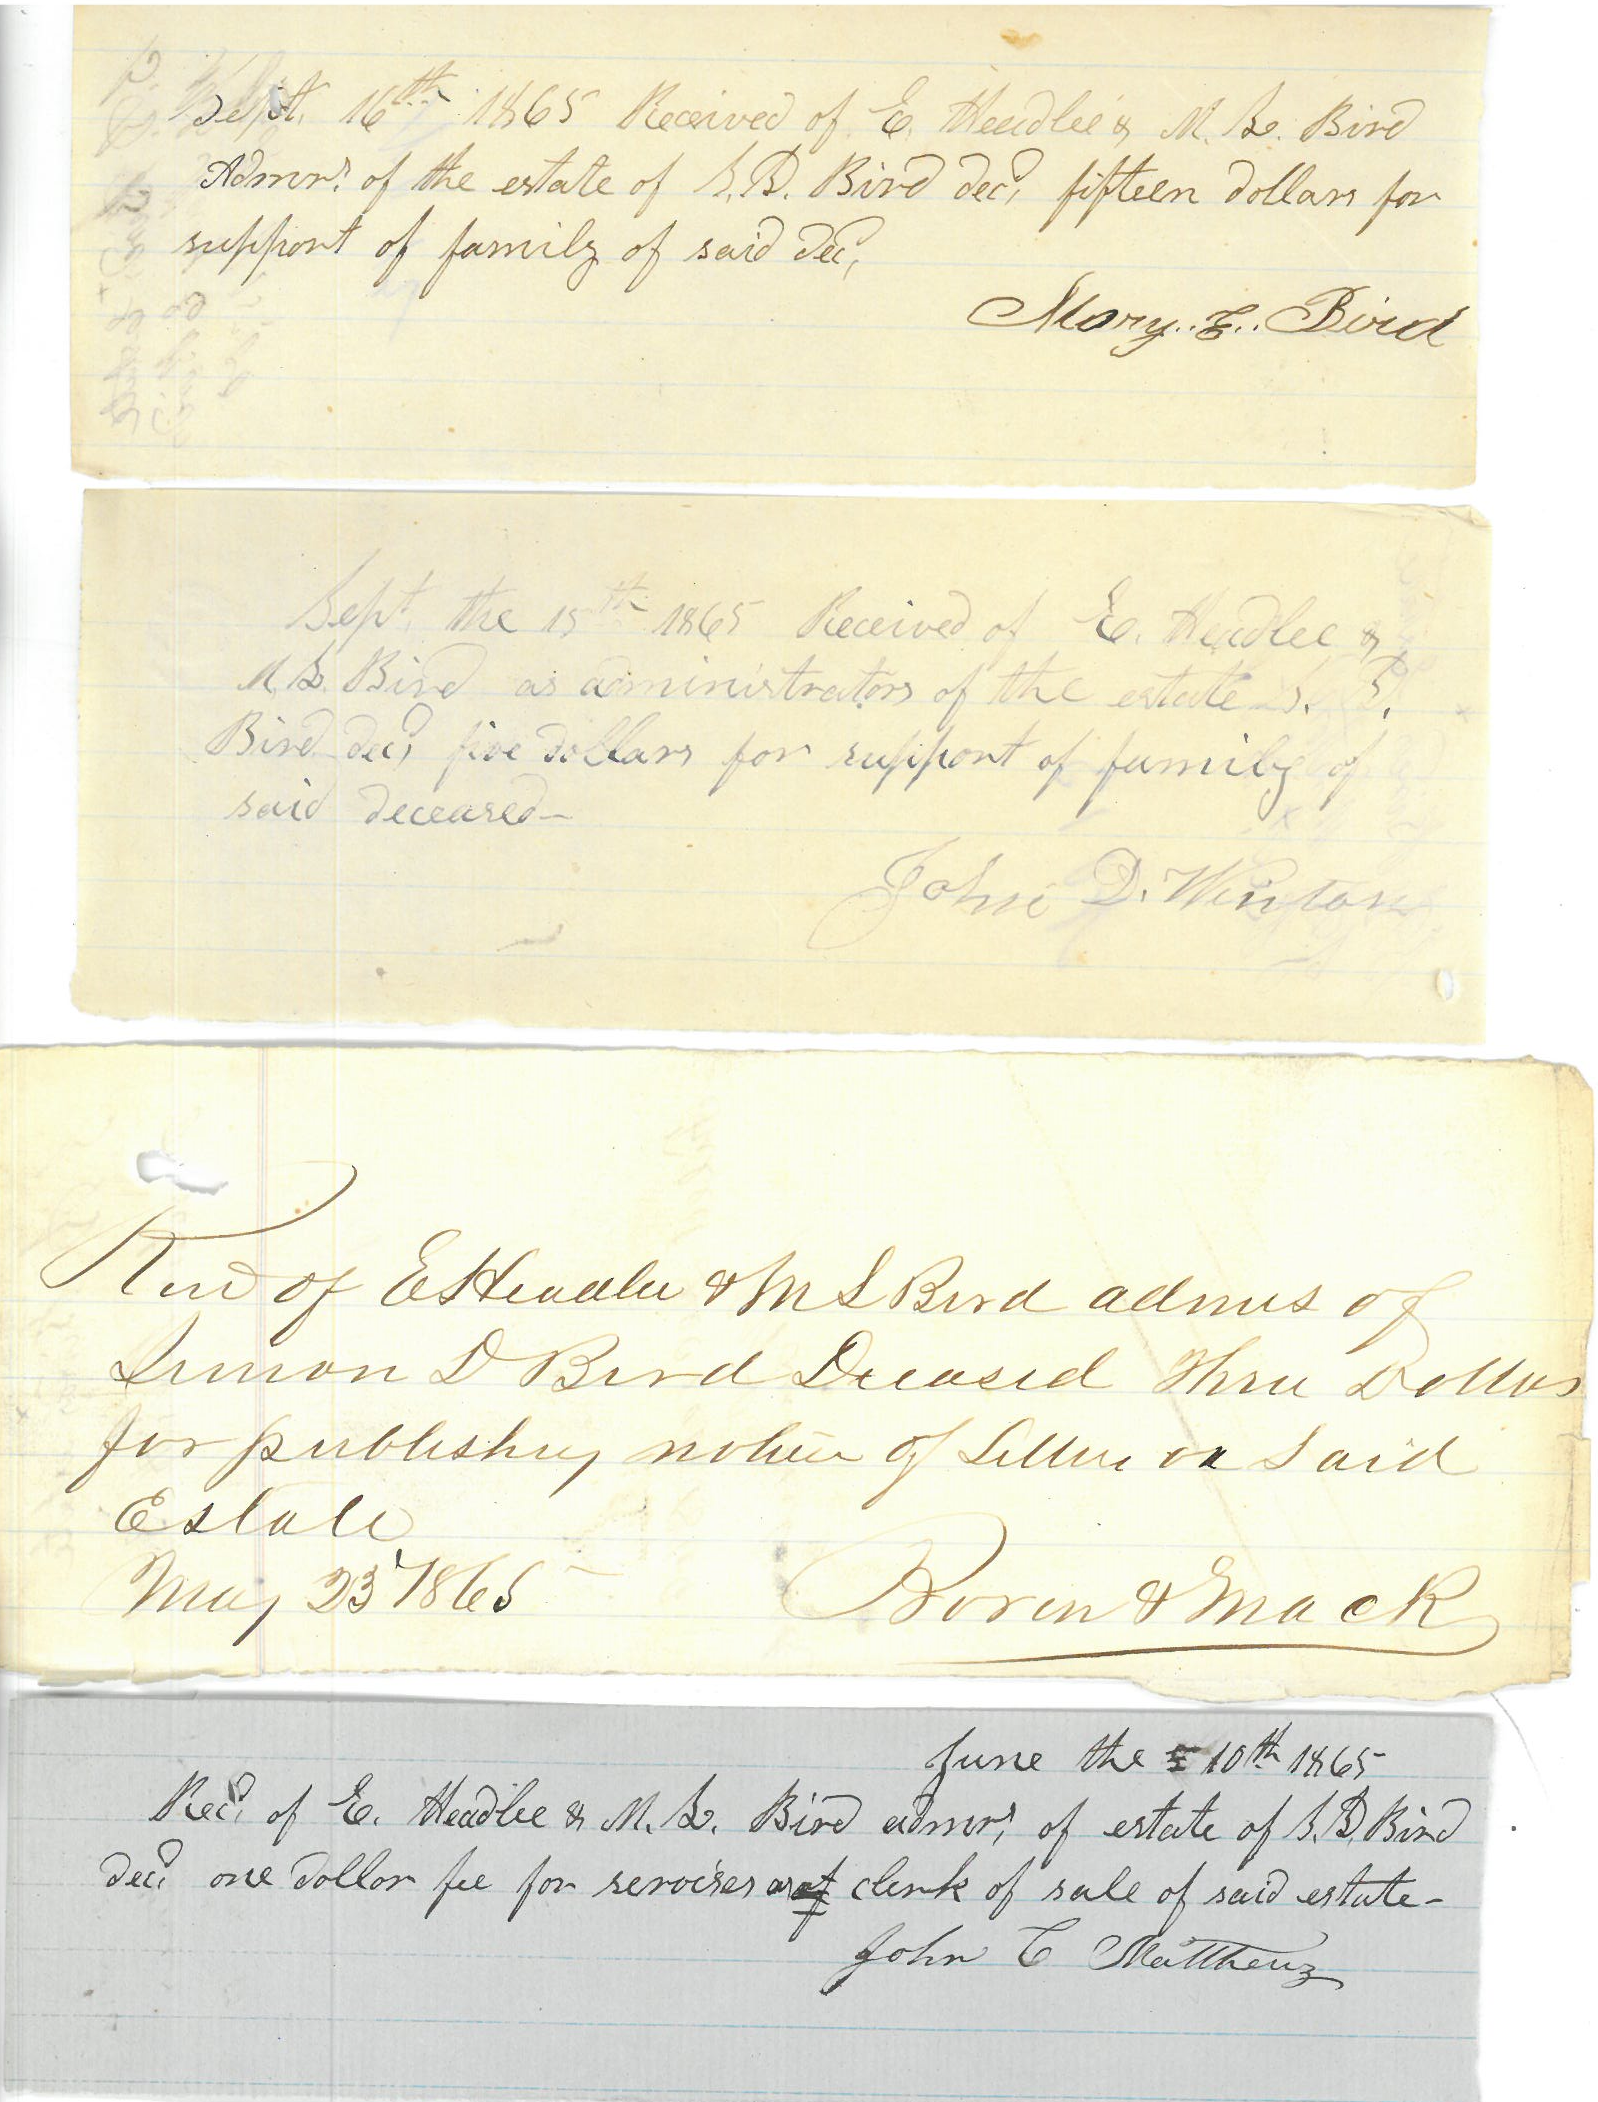 Sept. 16th 1865 Received of E. Headlee & M. L. Bird
Admrs. of the estate of S. D. Bird decd, fifteen dollars for
support of family of said decd,
Mary. E. Bird
Sept. the 15th 1865 Received of E. Headlee &
M. L. Bird as administrators of the estate S. D.
Bird decd, five dollars for support of family of
said deceased-
John D. Winton
Recd of E Headlee & M L Bird admrs of
Simon D Bird Deceased Three Dollars
for publishing notice of Letters on Said
Estate
May 23 1865
Boren & Mack
June the 10th 1865
Recd. of E. Headlee & M. L. Bird admrs, of estate of S. D. Bird
decd. one dollar fee for services as clerk of sale of said estate-
John C Matthews